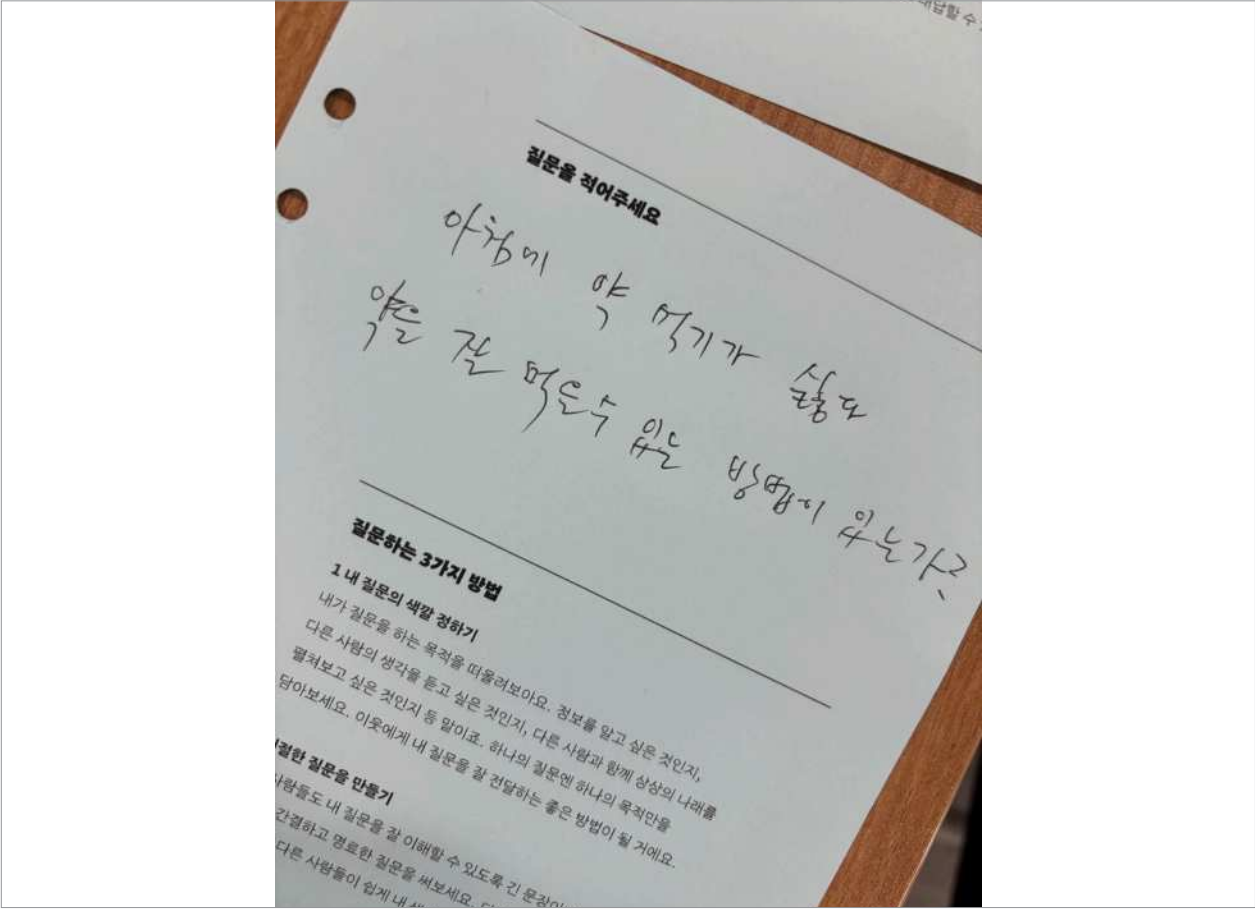 대답할 수
질문을 적어주세요
아침에 약 먹기가 싫다
약을 잘 먹을수 있는 방법이 있는가?
질문하는 3가지 방법
1 내 질문의 색깔 정하기
내가 질문을 하는 목적을 떠올려보아요. 정보를 알고 싶은 것인지,
다른 사람의 생각을 듣고 싶은 것인지, 다른 사람과 함께 상상의 나래를
펼쳐보고 싶은 것인지 등 말이죠. 하나의 질문엔 하나의 목적만을
담아보세요. 이웃에게 내 질문을 잘 전달하는 좋은 방법이 될 거에요.
질문을 만들기
사람들도 내 질문을 잘 이해할 수 있도록 긴 문장이
간결하고 명료한 질문을 써보세요.
다른 사람들이 쉽게 내